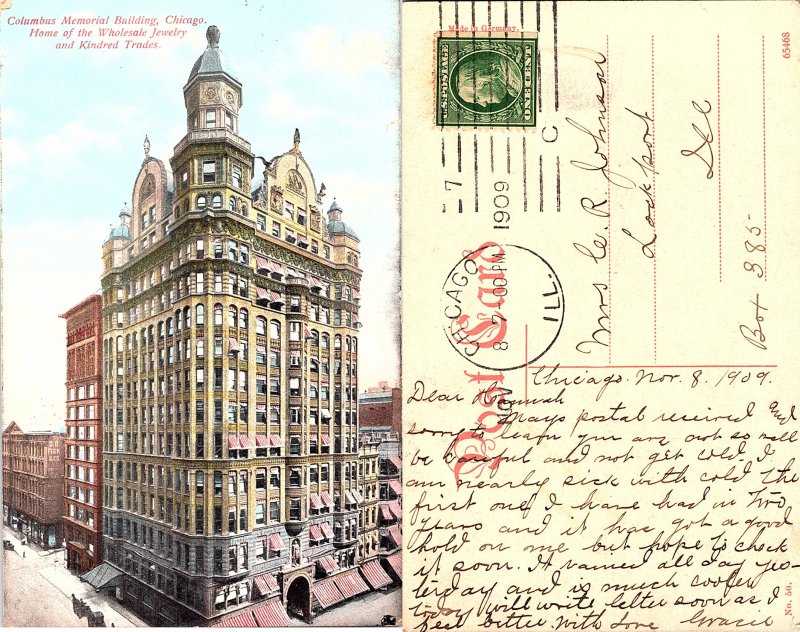 Columbus Memorial Building, Chicago.
Home of the Wholesale Jewelry
and Kindred Trades.
Made in Germany.
U.S. POSTAGE
ONE CENT
65468
7
1909
C
CHICAGO, ILL.
NOV 8 7-00 PM
Post Card
Mrs C. R. Johnson
Lockport
Ill
Box 385
Chicago. Nov. 8. 1909.
Dear Hannah
Mays postal received and
sorry to learn you are not so well
be careful and not get cold. I
am nearly sick with cold the
first one I have had in two
years and it has got a good
hold on me but hope to check
it soon. It rained all day yes-
terday and is much cooler
today will write letter soon as I
feel better. With Love Gracie
No. 50.